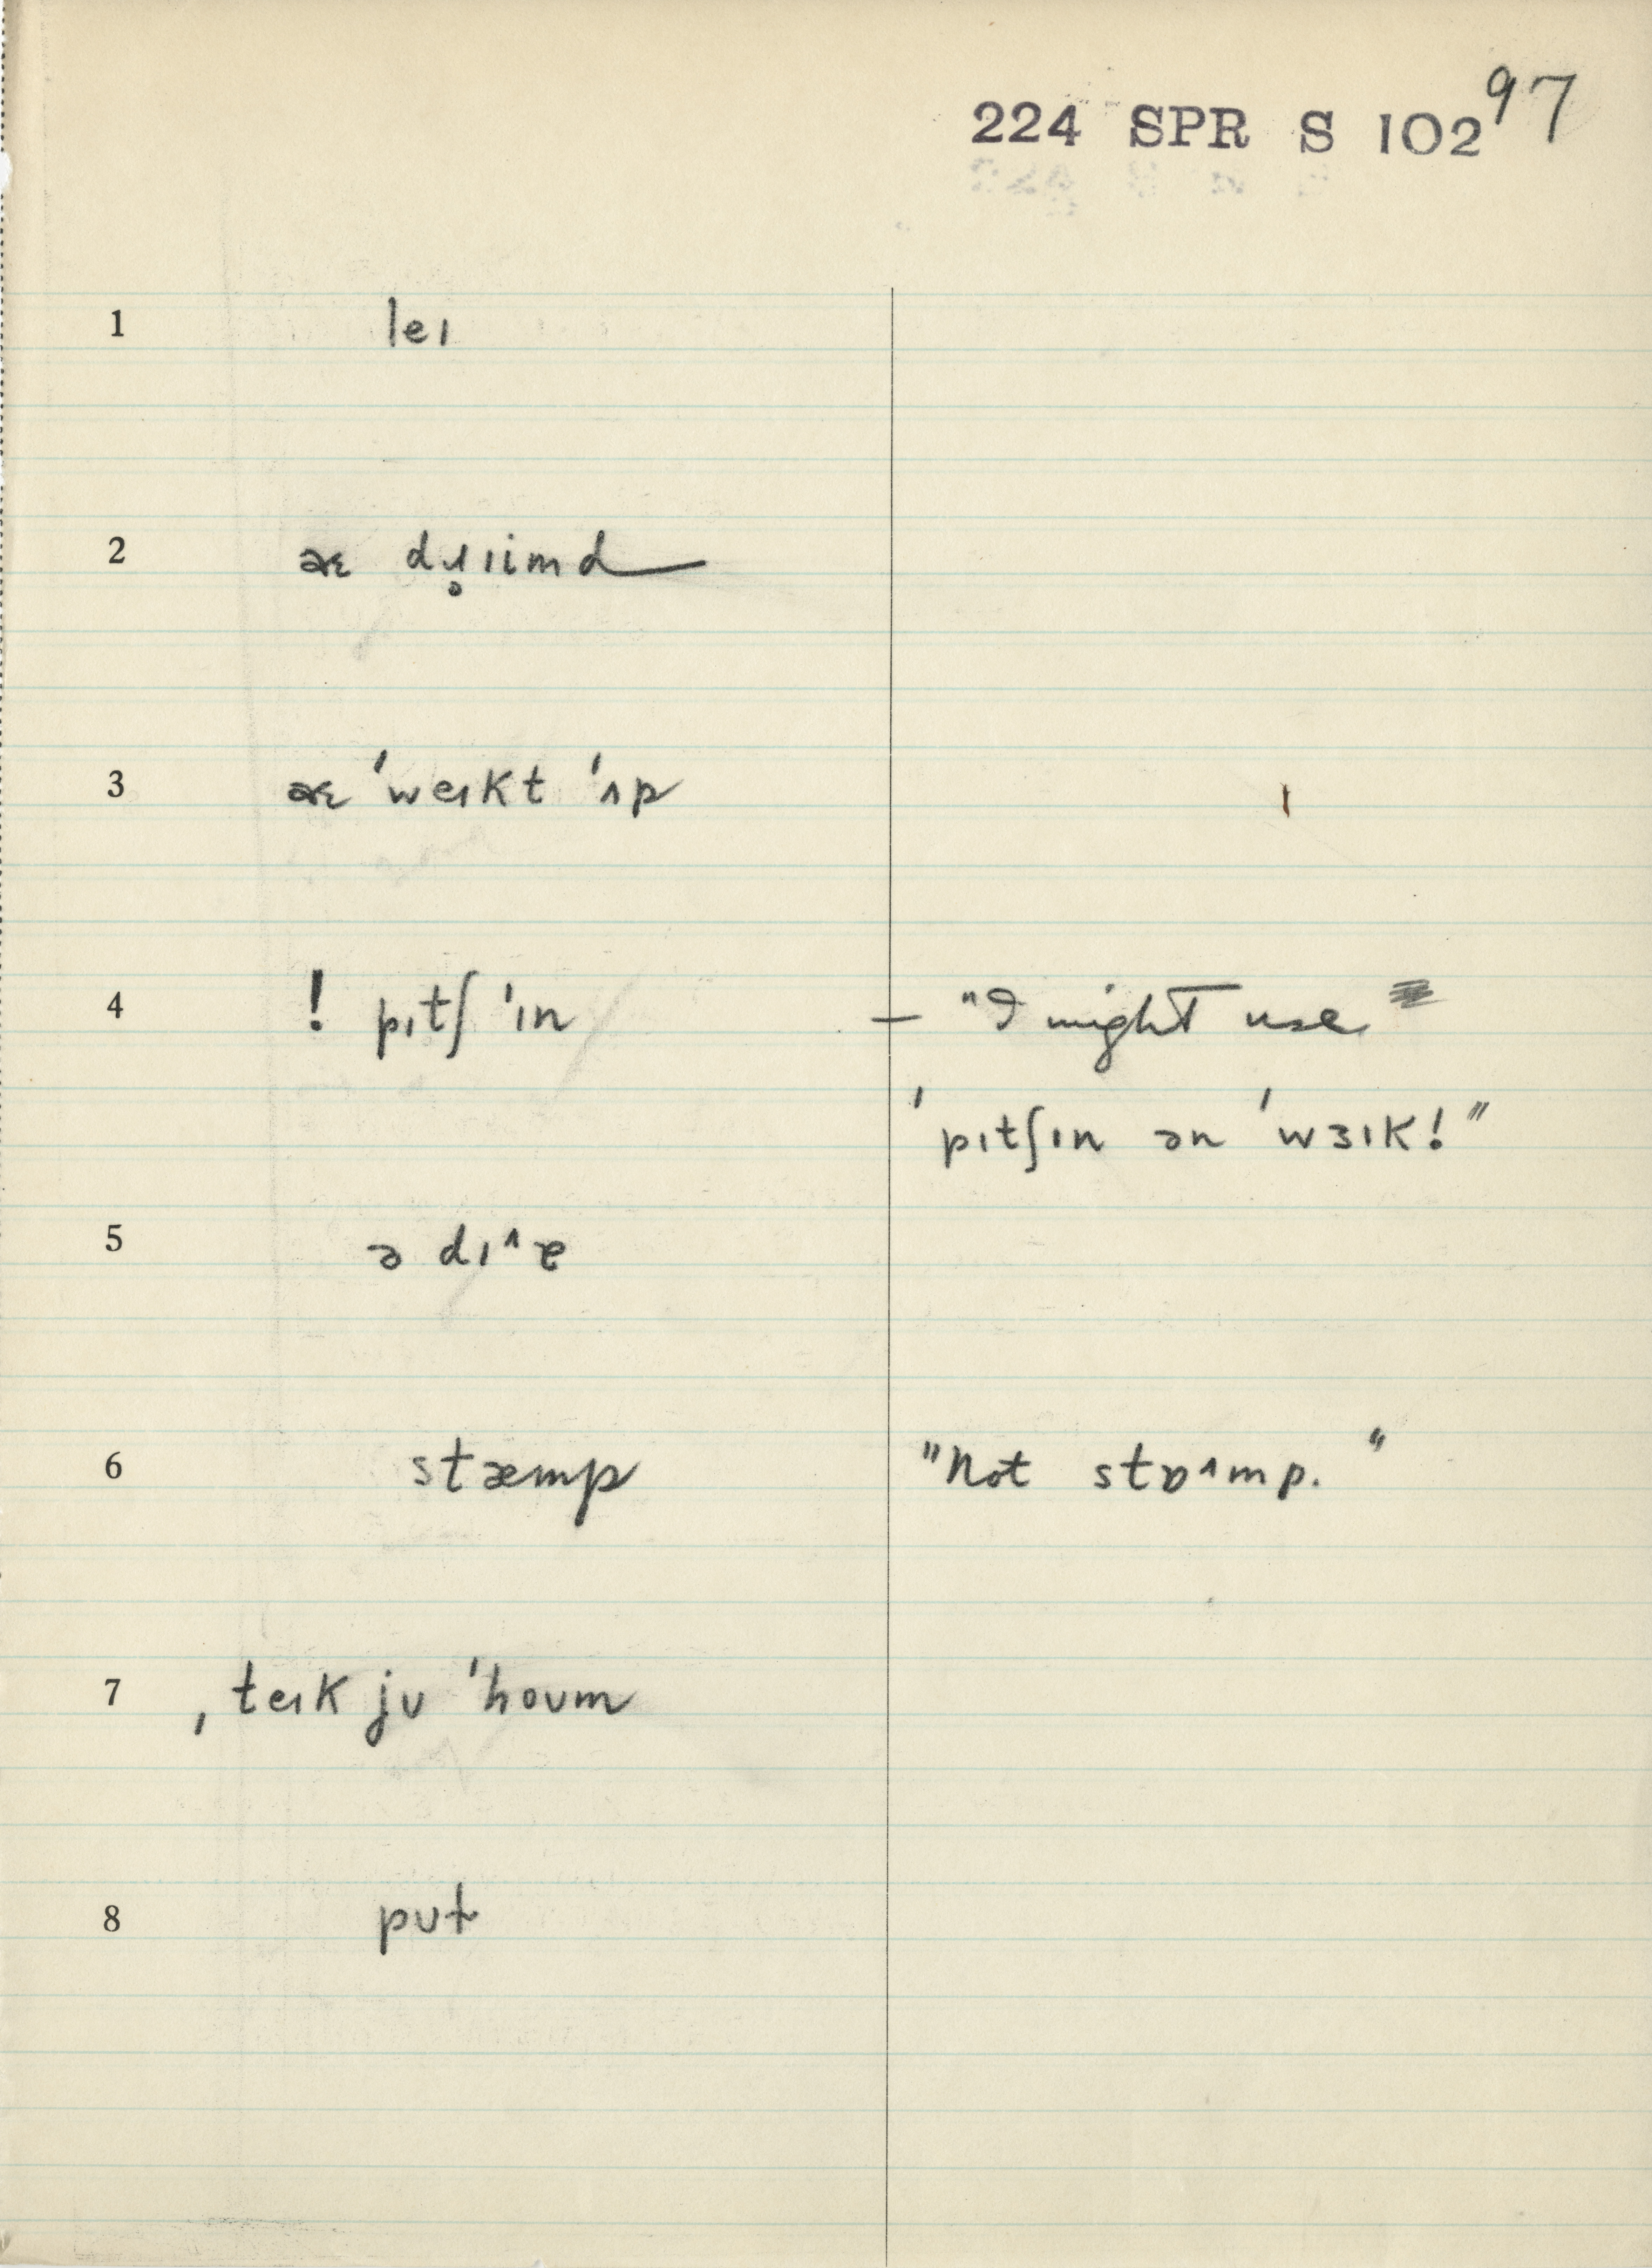 224 SPR S 102 97
1 leɪ
2 aɛ dɹ̥ɪimd
3 aɛ ˈweɪkt ˈʌp
4 ! pɪtʃ ˈɪn — "I might use
ˈpɪtʃɪn ən ˈwɜɪk!"
5 ə dɪ^ɐ
6 stæmp "Not stɒ^mp."
7 ˌteɪk jʊ ˈhoʊm
8 pʊt